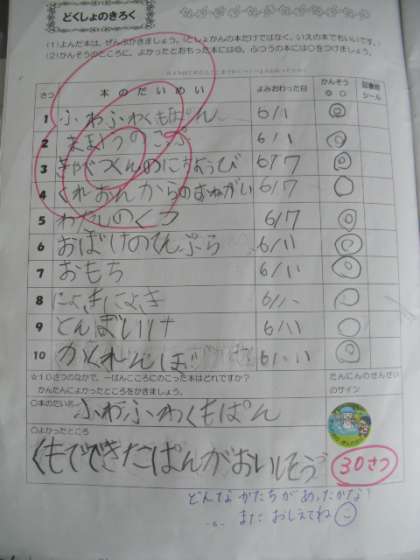 どくしょのきろく
(1)よんだ本は、ぜんぶかきましょう。としょかんの本だけではなく、いえの本でもいいです。
(2)かんそうのところに、よかったとおもった本には◎、ふつうの本には○をつけましょう。
さつ 本のだいめい よみおわった日 かんそう ◎ ○ 記念館シール
1 ふわふわくもぱん 6/1 ◎
2 まほうのコップ 6/1 ◎
3 つくんのにちようび 6/7 ◎
4 くれおんからのおねがい 6/7 ◎
5 わたしのくつ 6/7 ◎
6 おばけのてんぷら 6/11 ◎
7 おもち 6/11 ◎
8 にょきにょき 6/11 ○
9 とんぼいけ 6/11 ○
10 かくれんぼ 6/11 ○
☆10さつのなかで、一ばんこころにのこった本はどれですか？
かんたんによかったところをかきましょう。
たんにんのせんせいのサイン
○本のだいめい ふわふわくもぱん
○よかったところ
くもでできたぱんがおいしそう
30さつ
どんなかたちがあったかな？
またおしえてね
-6-